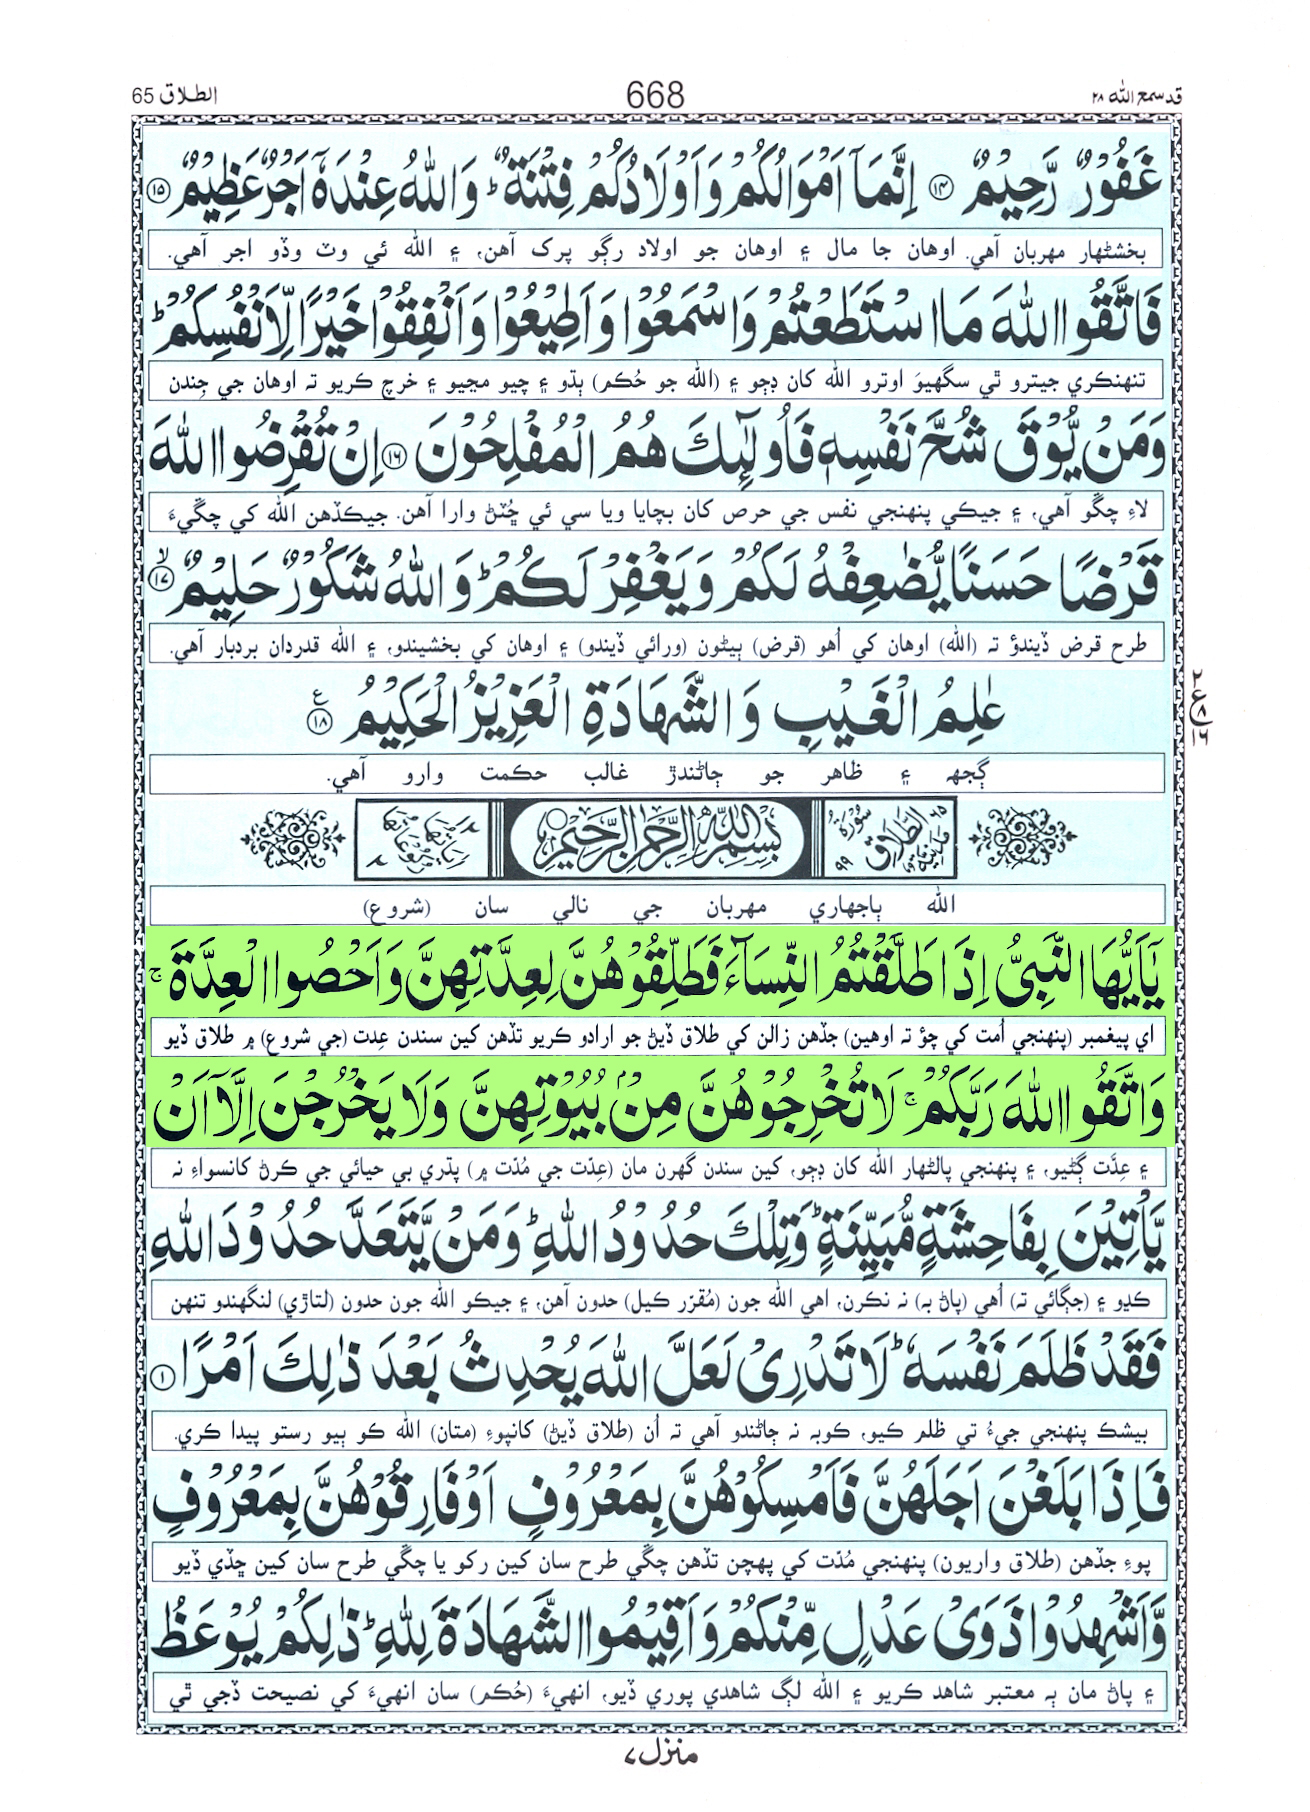 قد سمع الله ٢٨
668
الطلاق 65
غَفُوْرٌ رَّحِيْمٌ ۝١٤ اِنَّمَآ اَمْوَالُكُمْ وَاَوْلَادُكُمْ فِتْنَةٌ ؕ وَاللّٰهُ عِنْدَهٗٓ اَجْرٌ عَظِيْمٌ ۝١٥
بخشڻهار مهربان آهي. اوهان جا مال ۽ اوهان جو اولاد رڳو پرک آهن، ۽ الله ئي وٽ وڏو اجر آهي.
فَاتَّقُوا اللّٰهَ مَا اسْتَطَعْتُمْ وَاسْمَعُوْا وَاَطِيْعُوْا وَاَنْفِقُوْا خَيْرًا لِّاَنْفُسِكُمْ ؕ
تنهنڪري جيترو ٿي سگهيوَ اوترو الله کان ڊڄو ۽ (الله جو حُڪم) ٻڌو ۽ چيو مڃيو ۽ خرچ ڪريو ته اوهان جي جِندن
وَمَنْ يُّوْقَ شُحَّ نَفْسِهٖ فَاُولٰٓئِكَ هُمُ الْمُفْلِحُوْنَ ۝١٦ اِنْ تُقْرِضُوا اللّٰهَ
لاءِ چڱو آهي، ۽ جيڪي پنهنجي نفس جي حرص کان بچايا ويا سي ئي ڇُٽڻ وارا آهن. جيڪڏهن الله کي چڱيءَ
قَرْضًا حَسَنًا يُّضٰعِفْهُ لَكُمْ وَيَغْفِرْ لَكُمْ ؕ وَاللّٰهُ شَكُوْرٌ حَلِيْمٌ ۝١٧ۙ
طرح قرض ڏيندؤ ته (الله) اوهان کي اُهو (قرض) ٻيڻون (ورائي ڏيندو) ۽ اوهان کي بخشيندو، ۽ الله قدردان بردبار آهي.
عٰلِمُ الْغَيْبِ وَالشَّهَادَةِ الْعَزِيْزُ الْحَكِيْمُ ۝١٨ ع
ع ٢ ٨ ١٦
ڳجهه ۽ ظاهر جو ڄاڻندڙ غالب حڪمت وارو آهي.
٦٥ سُوْرَةُ الطَّلَاقِ مَدَنِيَّةٌ ٩٩
بِسْمِ اللّٰهِ الرَّحْمٰنِ الرَّحِيْمِ
اٰيَاتُهَا ١٢ رُكُوْعَاتُهَا ٢
الله ٻاجهاري مهربان جي نالي سان (شروع)
يٰٓاَيُّهَا النَّبِيُّ اِذَا طَلَّقْتُمُ النِّسَآءَ فَطَلِّقُوْهُنَّ لِعِدَّتِهِنَّ وَاَحْصُوا الْعِدَّةَ ۚ
اي پيغمبر (پنهنجي اُمت کي چؤ ته اوهين) جڏهن زالن کي طلاق ڏيڻ جو ارادو ڪريو تڏهن کين سندن عِدت (جي شروع) ۾ طلاق ڏيو
وَاتَّقُوا اللّٰهَ رَبَّكُمْ ۚ لَا تُخْرِجُوْهُنَّ مِنْۢ بُيُوْتِهِنَّ وَلَا يَخْرُجْنَ اِلَّآ اَنْ
۽ عِدَّت ڳڻيو، ۽ پنهنجي پالڻهار الله کان ڊڄو، کين سندن گهرن مان (عِدّت جي مُدّت ۾) پڌري بي حيائي جي ڪرڻ کانسواءِ نه
يَّاْتِيْنَ بِفَاحِشَةٍ مُّبَيِّنَةٍ ؕ وَتِلْكَ حُدُوْدُ اللّٰهِ ؕ وَمَنْ يَّتَعَدَّ حُدُوْدَ اللّٰهِ
ڪڍو ۽ (جڳائي ته) اُهي (پاڻ به) نه نڪرن، اهي الله جون (مُقرّر ڪيل) حدون آهن، ۽ جيڪو الله جون حدون (لتاڙي) لنگهندو تنهن
فَقَدْ ظَلَمَ نَفْسَهٗ ؕ لَا تَدْرِيْ لَعَلَّ اللّٰهَ يُحْدِثُ بَعْدَ ذٰلِكَ اَمْرًا ۝١
بيشڪ پنهنجي جيءُ تي ظلم ڪيو، ڪوبه نه ڄاڻندو آهي ته اُن (طلاق ڏيڻ) کانپوءِ (متان) الله ڪو ٻيو رستو پيدا ڪري.
فَاِذَا بَلَغْنَ اَجَلَهُنَّ فَاَمْسِكُوْهُنَّ بِمَعْرُوْفٍ اَوْ فَارِقُوْهُنَّ بِمَعْرُوْفٍ
پوءِ جڏهن (طلاق واريون) پنهنجي مُدّت کي پهچن تڏهن چڱي طرح سان کين رکو يا چڱي طرح سان کين ڇڏي ڏيو
وَّاَشْهِدُوْا ذَوَيْ عَدْلٍ مِّنْكُمْ وَاَقِيْمُوا الشَّهَادَةَ لِلّٰهِ ؕ ذٰلِكُمْ يُوْعَظُ
۽ پاڻ مان ٻه معتبر شاهد ڪريو ۽ الله لڳ شاهدي پوري ڏيو، انهيءَ (حُڪم) سان انهيءَ کي نصيحت ڏجي ٿي
منزل ٧